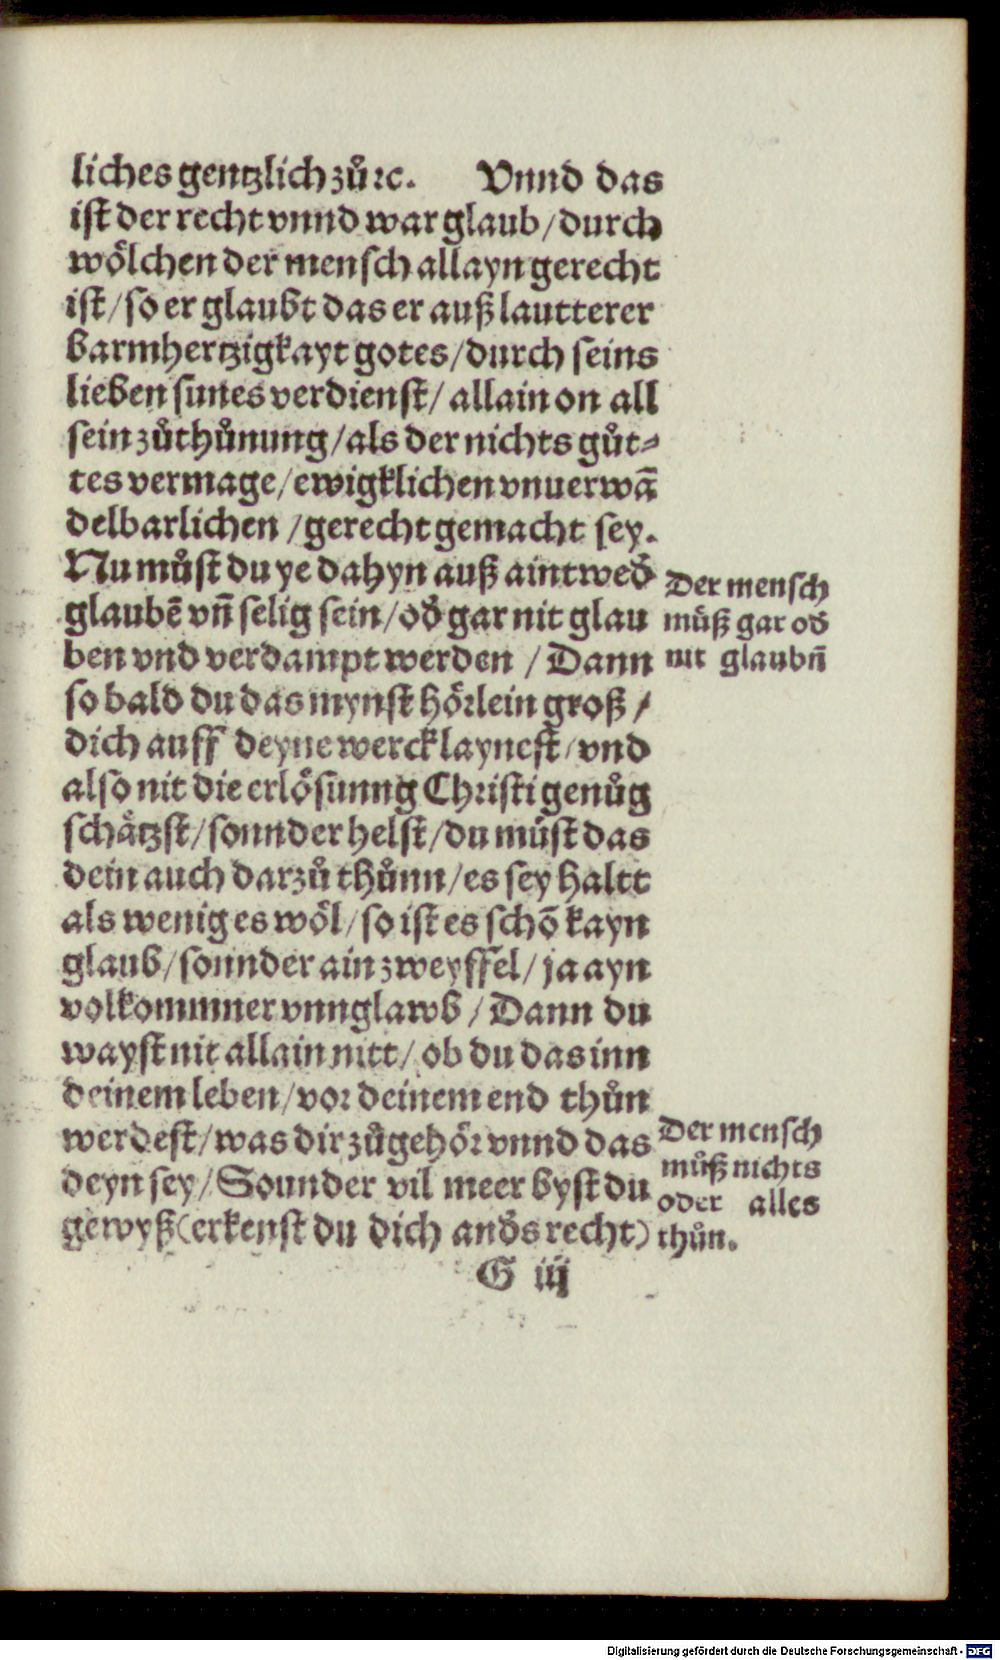 liches gentzlich zůꝛc. Vnnd das
ist der recht vnnd war glaub/durch
wölchen der mensch allayn gerecht
ist/so er glaubt das er auß lautterer
barmhertzigkayt gotes/durch seins
lieben sunes verdienst/ allain on all
sein zůthůnung/als der nichts gůt⸗
tes vermage/ewigklichen vnuerwā
delbarlichen /gerecht gemacht sey.
Nu můst du ye dahyn auß aintwed̕
glaubē vñ selig sein/od̕ gar nit glau
ben vnd verdampt werden / Dann
so bald du das mynst hörlein groß /
dich auff deyne werck laynest/vnd
also nit die erlösunng Christi genůg
schätzst/sonnder helst/du můst das
dein auch darzů thůnn/es sey haltt
als wenig es wöl/so ist es schō kayn
glaub/sonnder ain zweyffel/ja ayn
volkommner vnnglawb / Dann du
wayst nit allain nitt/ ob du das inn
deinem leben/vor deinem end thůn
werdest/was dir zůgehör vnnd das
deyn sey/Sounder vil meer byst du
gewyß(erkenst du dich and̕s recht)
G iij
Der mensch
můß gar od̕
nit glaubñ
Der mensch
můß nichts
oder alles
thůn.
Digitalisierung gefördert durch die Deutsche Forschungsgemeinschaft - DFG